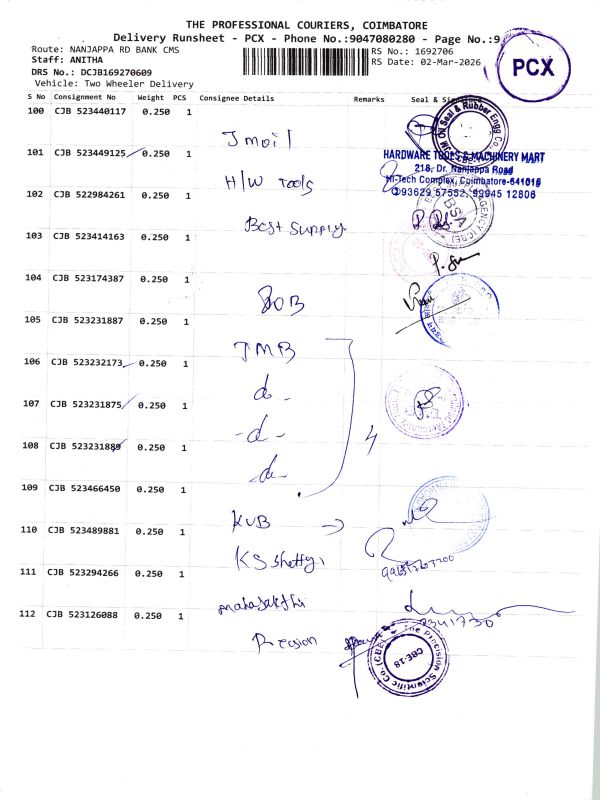 THE PROFESSIONAL COURIERS, COIMBATORE
Delivery Runsheet - PCX - Phone No.:9047080280 - Page No.:9
Route: NANJAPPA RD BANK CMS
RS No.: 1692706
Staff: ANITHA
RS Date: 02-Mar-2026
DRS No.: DCJB169270609
Vehicle: Two Wheeler Delivery
PCX
S No Consignment No Weight PCS Consignee Details Remarks Seal &
100 CJB 523440117 0.250 1
Jmoil
101 CJB 523449125 0.250 1
HARDWARE TOOLS & MACHINERY MART
218, Dr. Nanjappa Road
Hi-Tech Complex, Coimbatore-641018
93629 57552, 99945 12806
H/W Tools
102 CJB 522984261 0.250 1
Best Supply
103 CJB 523414163 0.250 1
104 CJB 523174387 0.250 1
105 CJB 523231887 0.250 1
TMB
106 CJB 523232173 0.250 1
107 CJB 523231875 0.250 1
108 CJB 523231889 0.250 1
4
109 CJB 523466450 0.250 1
KVB
110 CJB 523489881 0.250 1
KS shetty
111 CJB 523294266 0.250 1
mahasakthi
112 CJB 523126088 0.250 1
The Precision Scientific Co. (CBE)
CBE-18